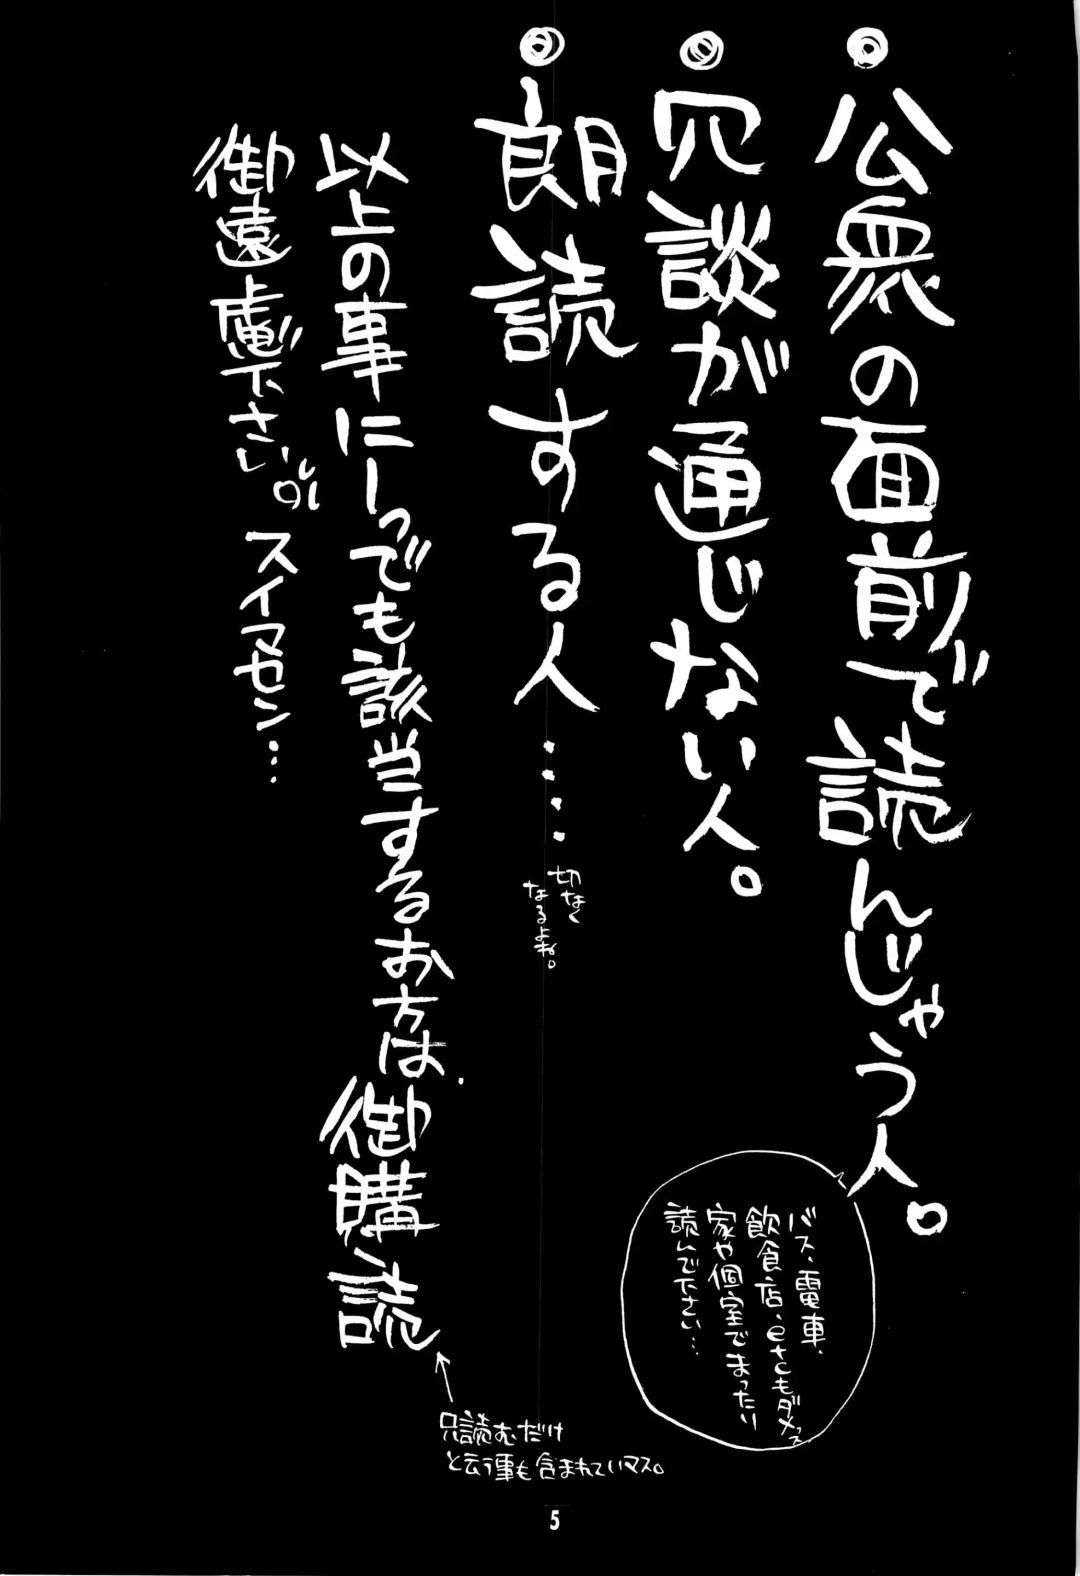 ◎公衆の面前で読んじゃう人。
バス、電車、
飲食店、etcもダメッス
家や個室でまったり
読んで下さい…
◎冗談が通じない人。
◎朗読する人……
切なく
なるよね。
以上の事に一つでも該当するお方は、
御購読
只読むだけ
と云う事も含まれていマス。
御遠慮下さい。
スイマセン…
5